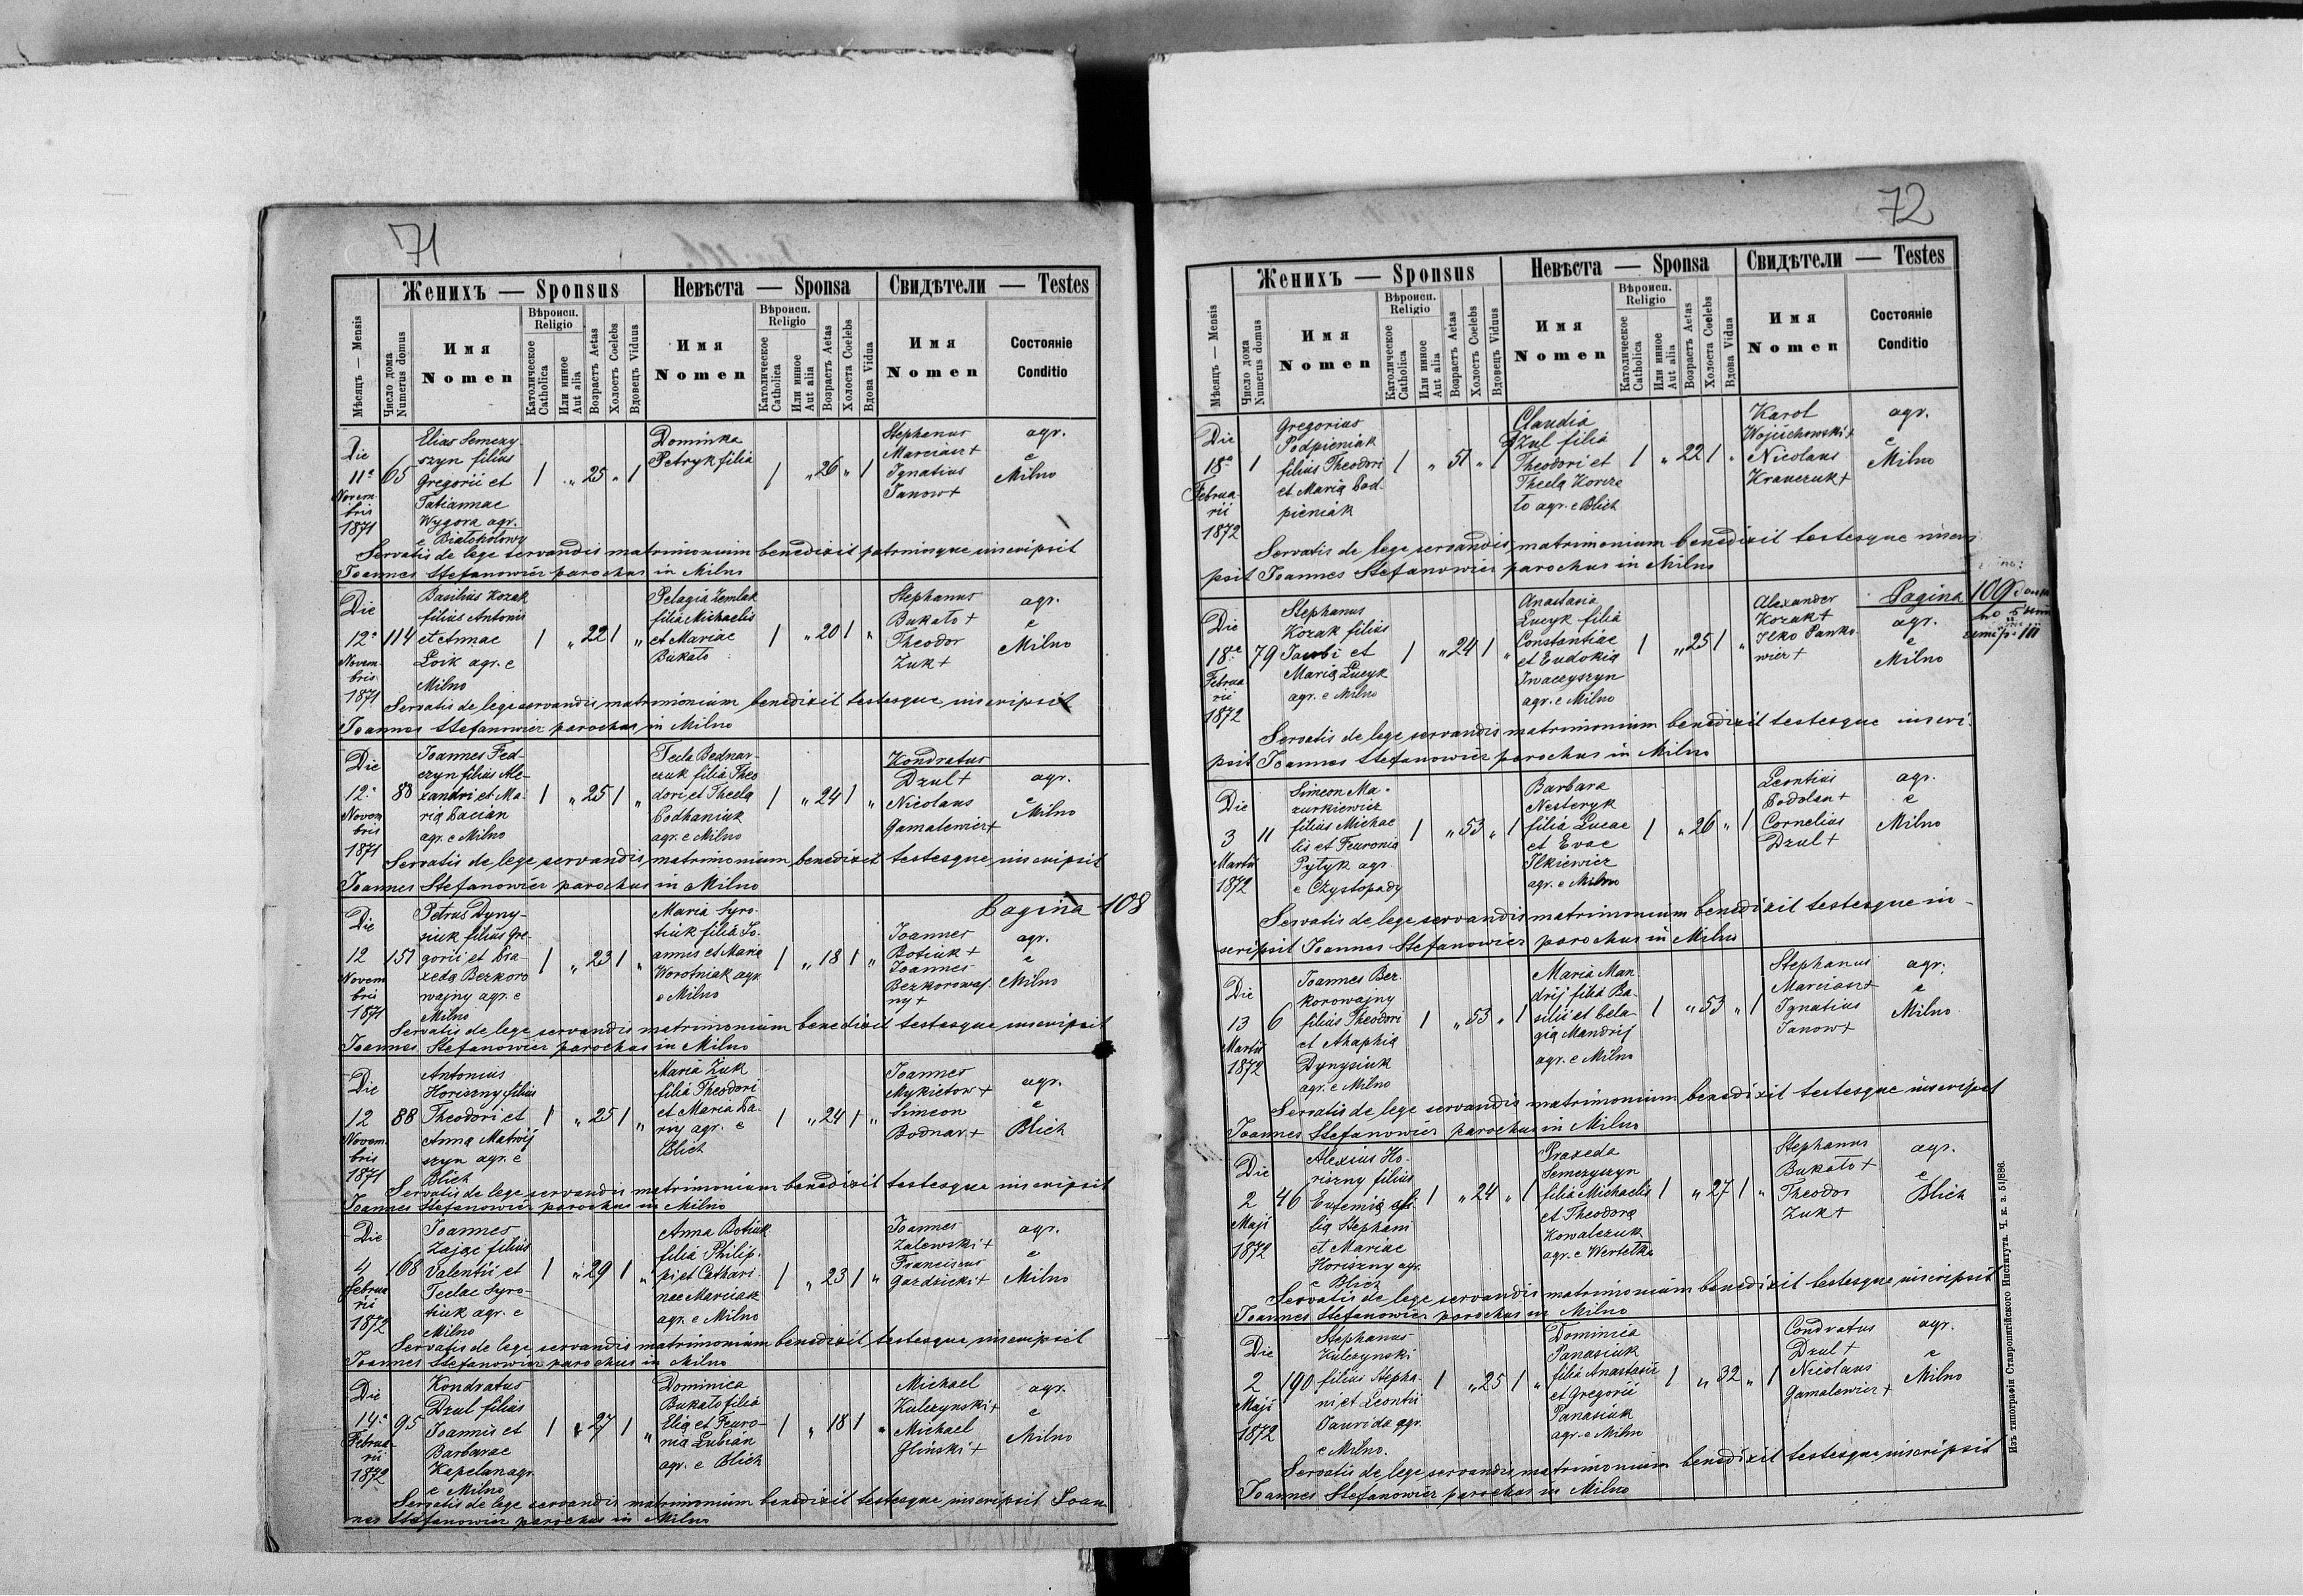 71
Женихъ — Sponsus
Невѣста — Sponsa
Свидѣтели — Testes
Мѣсяцъ — Mensis
Число дома
Numerus domus
Имя
Nomen
Вѣроисп.
Religio
Католическое
Catholica
Или инное
Aut alia
Возрастъ Aetas
Холостъ Coelebs
Вдовецъ Viduus
Имя
Nomen
Вѣроисп.
Religio
Католическое
Catholica
Или инное
Aut alia
Возрастъ Aetas
Холоста Coelebs
Вдова Vidua
Имя
Nomen
Состояніе
Conditio
Die
11a
Novem
bris
1871
65
Elias Semczy
szyn filius
Gregorii et
Tatiannae
Wygora agr.
e Białokołowy
1 „ 25 „ 1
Dominka
Petryk filia
1 „ 26 „ 1
Stephanus
Marciasz +
Ignatius
Janow +
agr.
e
Milno
Servatis de lege servandis matrimonium benedixit patrinisque inscripsit
Joannes Stefanowicz parochus in Milno
Die
12a
Novem
bris
1871
114
Basilius Kozak
filius Antonii
et Annae
Łoik agr. e
Milno
1 „ 22 1 „
Pelagia Zemlak
filia Michaelis
et Mariae
Bukato
1 „ 20 1 „
Stephanus
Bukato +
Theodor
Zuk +
agr.
e
Milno
Servatis de lege servandis matrimonium benedixit testesque inscripsit
Joannes Stefanowicz parochus in Milno
Die
12a
Novem
bris
1871
88
Joannes Fed-
czyn filius Ale-
xandri et Ma-
ria Pacian
agr. e Milno
1 „ 25 1 „
Tecla Bednar-
czuk filia Theo
dori et Thecla
Podhaniuk
agr. e Milno
1 „ 24 1 „
Kondratus
Dzul +
Nicolaus
Gamalewicz +
agr.
e
Milno
Servatis de lege servandis matrimonium benedixit testesque inscripsit
Joannes Stefanowicz parochus in Milno
Pagina 108
Die
12
Novem
bris
1871
151
Petrus Dyny-
siuk filius Gre-
gorii et Pra-
xeda Bezkoro
wajny agr. e
Milno
1 „ 23 1 „
Maria Syro-
tiuk filia Jo-
annis et Maria
Worotniak agr.
e Milno
1 „ 18 1 „
Joannes
Botiuk +
Joannes
Bezkorowaj-
ny +
agr.
e
Milno
Servatis de lege servandis matrimonium benedixit testesque inscripsit
Joannes Stefanowicz parochus in Milno
Die
12
Novem.
bris
1871
88
Antonius
Horiszny filius
Theodori et
Anna Matwij
szyn agr. e
Blich
1 „ 25 1 „
Maria Zuk
filia Theodori
et Maria
agr. e
Blich
1 „ 24 1 „
Joannes
Mykietow +
Simeon
Bodnar +
agr.
e
Blich
Servatis de lege servandis matrimonium benedixit testesque inscripsit
Joannes Stefanowicz parochus in Milno
Die
4
Februa
rii
1872
108
Joannes
Zając filius
Valentii et
Teclae Syro-
tiuk agr. e
Milno
1 „ 29 1 „
Anna Botiuk
filia Philip-
pi et Cathari-
nae Marciasz
agr. e Milno
1 „ 23 1 „
Joannes
Zalewski +
Franciscus
Gazdzicki +
agr.
e
Milno
Servatis de lege servandis matrimonium benedixit testesque inscripsit
Joannes Stefanowicz parochus in Milno
Die
14a
Februa
rii
1872
95
Kondratus
Dzul filius
Joannis et
Barbarae
Kapelan agr.
e Milno
1 „ 27 1 „
Dominica
Bukato filia
Elia et Feuro-
nia Łubian
agr. e Blich
1 „ 18 1 „
Michael
Kulczynski +
Michael
Gliński +
agr.
e
Milno
Servatis de lege servandis matrimonium benedixit testesque inscripsit Joan
nes Stefanowicz parochus in Milno
72
Женихъ — Sponsus
Невѣста — Sponsa
Свидѣтели — Testes
Мѣсяцъ — Mensis
Число дома
Numerus domus
Имя
Nomen
Вѣроисп.
Religio
Католическое
Catholica
Или инное
Aut alia
Возрастъ Aetas
Холостъ Coelebs
Вдовецъ Viduus
Имя
Nomen
Вѣроисп.
Religio
Католическое
Catholica
Или инное
Aut alia
Возрастъ Aetas
Холоста Coelebs
Вдова Vidua
Имя
Nomen
Состояніе
Conditio
Die
18a
Februa
rii
1872
1
Gregorius
Podpieniak
filius Theodori
et Maria Pod-
pieniak
1 „ 51 „ 1
Claudia
Dzul filia
Theodori et
Thecla Korze
to agr. e Blich
1 „ 22 1 „
Karol
Wojciechowski +
Nicolaus
Krawczuk +
agr.
e
Milno
Servatis de lege servandis matrimonium benedixit testesque inscri
psit Joannes Stefanowicz parochus in Milno
Pagina 109
Die
18a
Februa
rii
1872
79
Stephanus
Kozak filius
Jacobi et
Maria Łucyk
agr. e Milno
1 „ 24 1 „
Anastasia
Łucyk filia
Constantiae
et Eudokia
Iwaczyszyn
agr. e Milno
1 „ 25 1 „
Alexander
Kozak +
Ilko Panko
wicz +
agr.
e
Milno
Servatis de lege servandis matrimonium benedixit testesque inscri-
psit Joannes Stefanowicz parochus in Milno
Die
3
Martii
1872
11
Simeon Ma-
zurkiewicz
filius Michae
lis et Feuronia
Pytyk agr.
e Czystopady
1 „ 53 „ 1
Barbara
Nesteryk
filia Lucae
et Evae
Ilkiewicz
agr. e Milno
1 „ 26 „ 1
Leontius
Podolan +
Cornelius
Dzul +
agr.
e
Milno
Servatis de lege servandis matrimonium benedixit testesque in-
scripsit Joannes Stefanowicz parochus in Milno
Die
13
Martii
1872
6
Joannes Bez-
korowajny
filius Theodori
et Ahaphia
Dynysiuk
agr. e Milno
1 „ 53 „ 1
Maria Man
drij filia Ba-
silii et Pela-
gia Mandrij
agr. e Milno
1 „ 53 „ 1
Stephanus
Marciasz +
Ignatius
Janow +
agr.
e
Milno
Servatis de lege servandis matrimonium benedixit testesque inscripsit
Joannes Stefanowicz parochus in Milno
Die
2
Maji
1872
46
Alexius Ho-
riszny filius
Eufemia
Stephani
et Mariae
Horiszny agr.
e Blich
1 „ 24 „ 1
Praxeda
Semczyszyn
filia Michaelis
et Theodora
Kowalczuk
agr. e Wertelka
1 „ 27 1 „
Stephanus
Bukato +
Theodor
Zuk +
agr.
e
Blich
Servatis de lege servandis matrimonium benedixit testesque inscripsit
Joannes Stefanowicz parochus in Milno
Die
2
Maji
1872
190
Stephanus
Kulczynski
filius Stepha-
ni et Leontii
Taurida agr.
e Milno.
1 „ 25 1 „
Dominica
Panasiuk
filia Anastasie
et Gregorii
Panasiuk
agr. e Milno
1 „ 32 „ 1
Condratus
Dzul +
Nicolaus
Gamalewicz +
agr.
e
Milno
Servatis de lege servandis matrimonium benedixit testesque inscripsit
Joannes Stefanowicz parochus in Milno
Изъ типографіи Ставропигійского Института. Ч. к. з. 51/886.